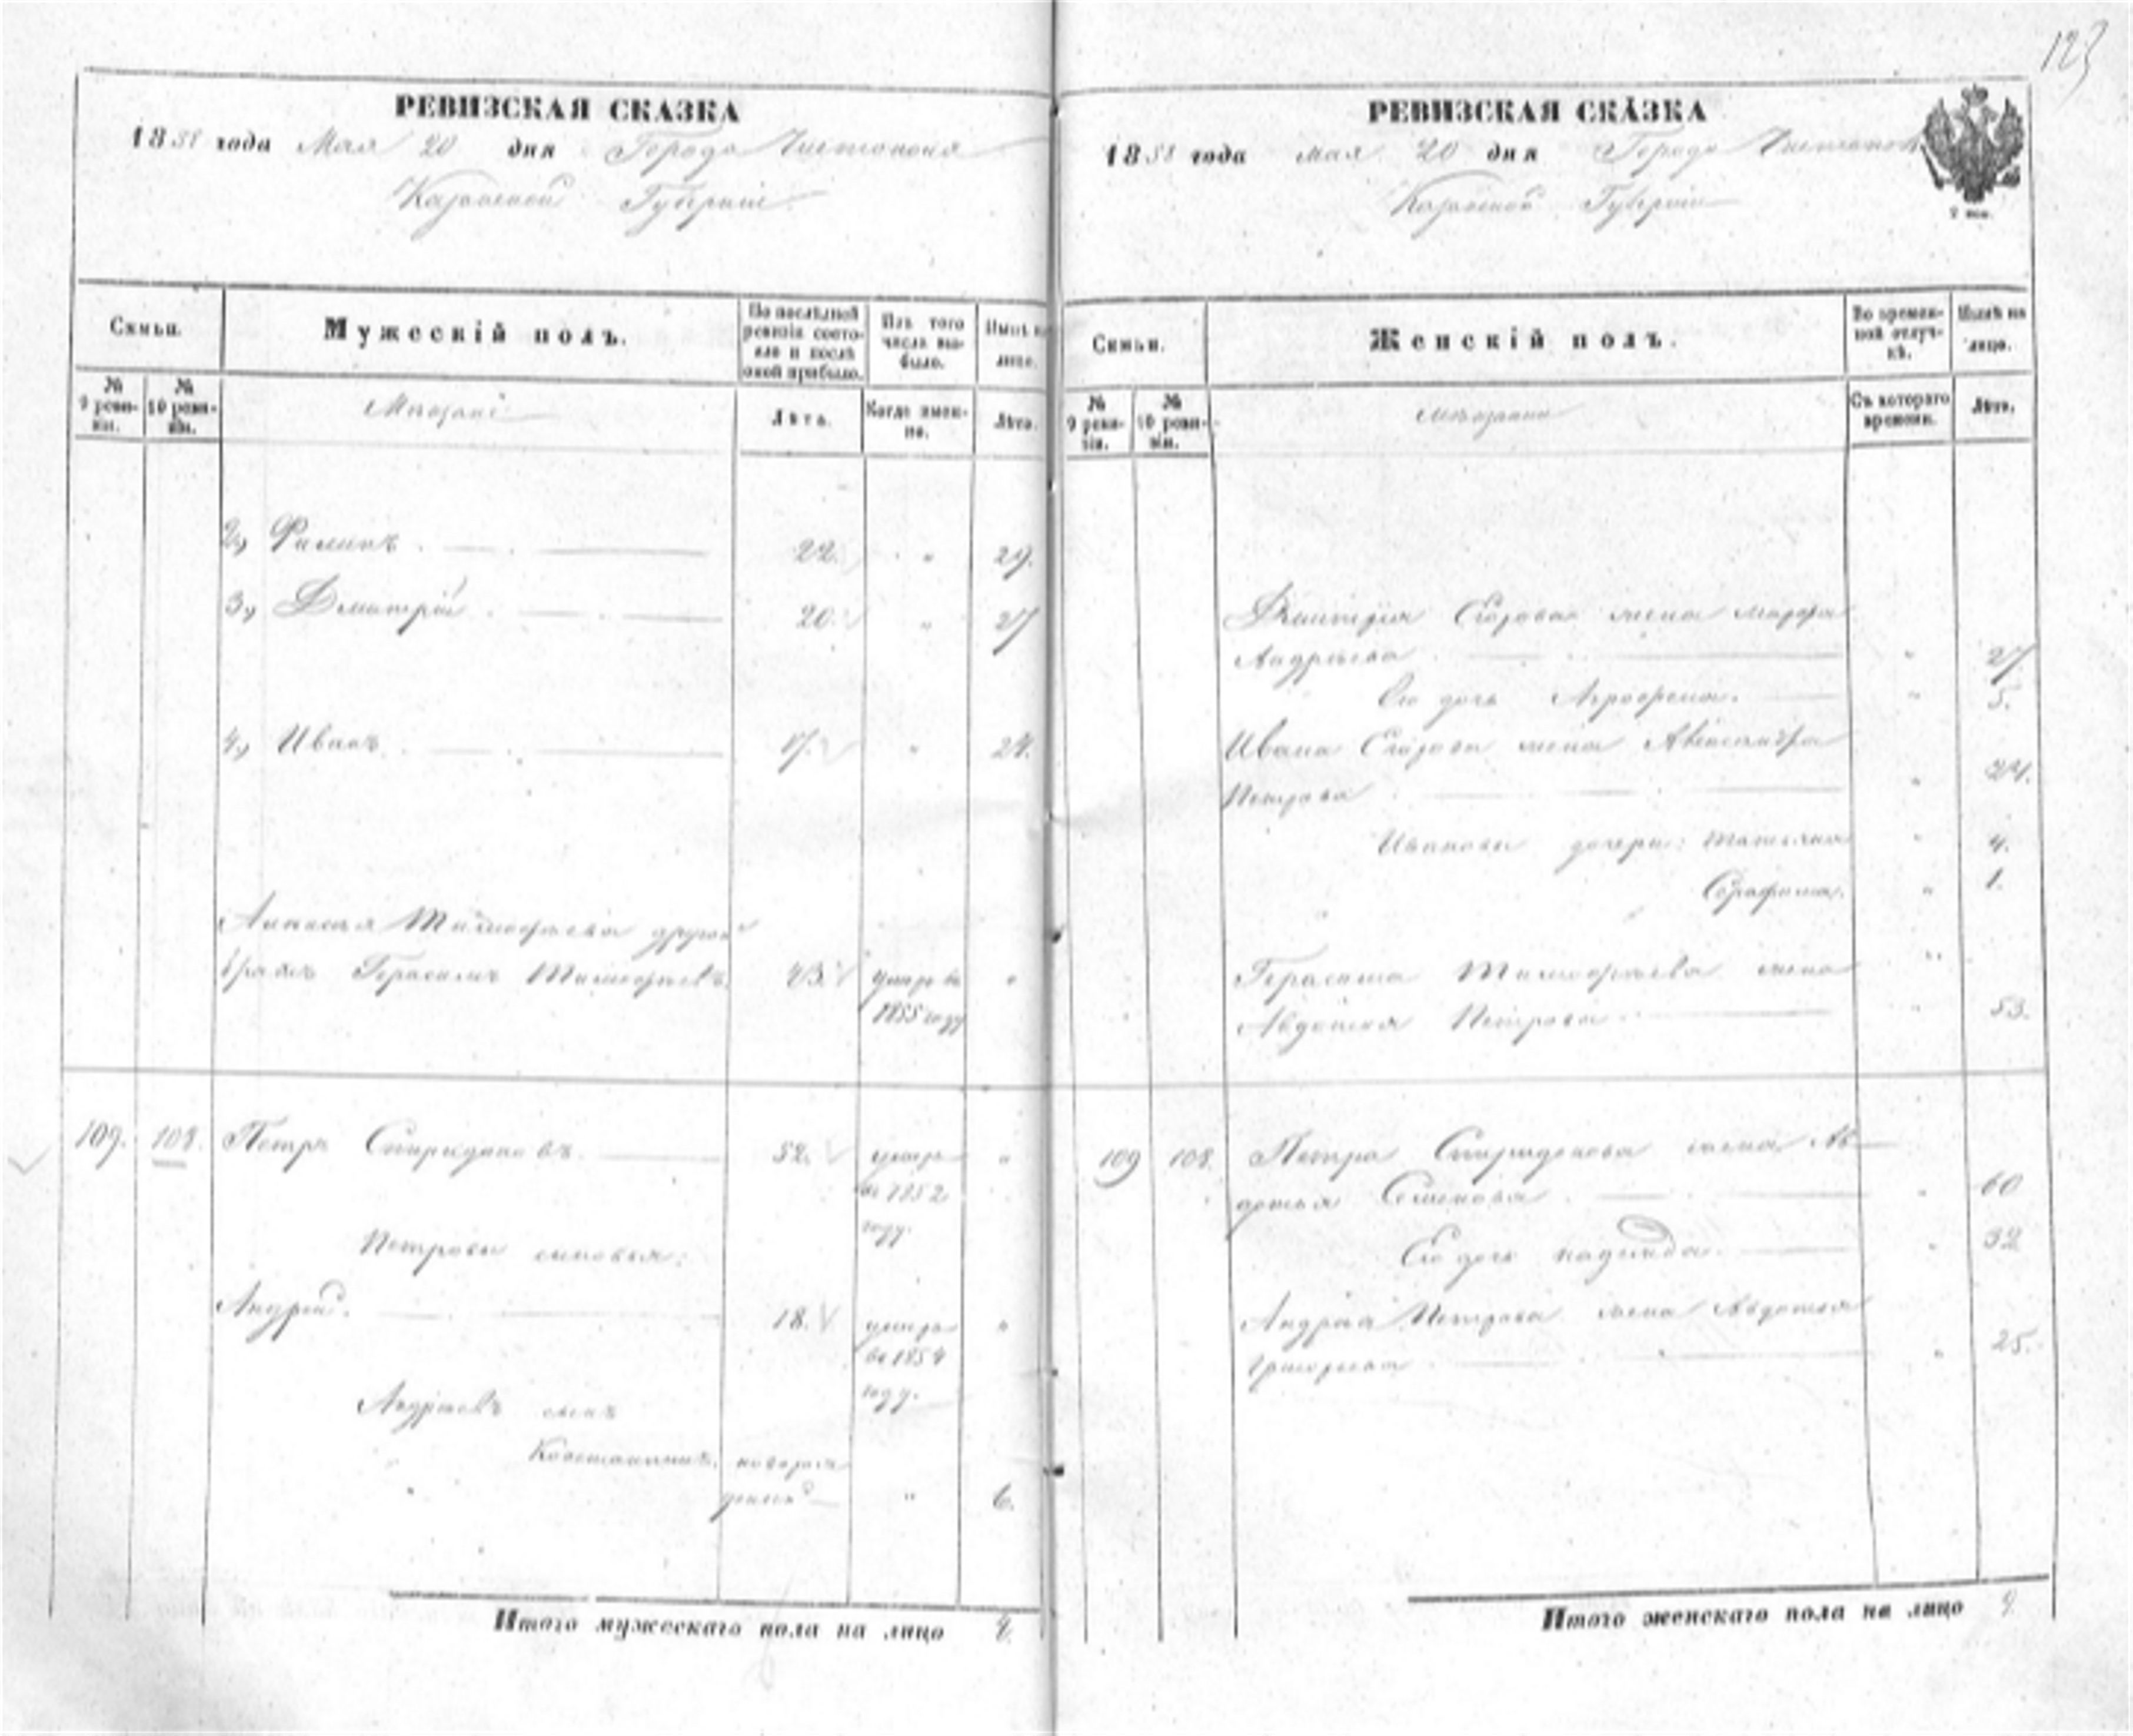 123
РЕВИЗСКАЯ СКАЗКА
1858 года Мая 20 дня Города Чистополя
Казанской Губернии
Семьи.
Мужескій полъ.
По послѣдней ревизіи состояло и послѣ оной прибыло.
Изъ того числа выбыло.
Нынѣ на лицо.
№ 9 ревизіи.
№ 10 ревизіи.
Мѣщане
Лѣта.
Когда именно.
Лѣта.
2, Филипъ. 22. " 29.
3, Дмитрій. 20. " 27
4, Иванъ. 17. " 24.
Тимофѣева другой
братъ Герасимъ Тимофѣевъ 43. умеръ въ "
1855 году
109. 108. Петръ Спиридоновъ. 52. умеръ "
въ 1852
году.
Петровы сыновья:
Андрей. 18. умеръ "
въ 1854
году.
Андреевъ сынъ
Константинъ. новорож
денный " 6.
Итого мужескаго пола на лицо 4.
РЕВИЗСКАЯ СКАЗКА
1858 года мая 20 дня Города Чистополя
Казанской Губернии
Семьи.
Женскій полъ.
Во временной отлучкѣ.
Нынѣ на лицо.
№ 9 ревизіи.
№ 10 ревизіи.
Съ котораго времени.
Лѣта.
Дмитрія Егорова жена Марфа
Андрѣева " 27
Его дочь Агрофена. " 5.
Ивана Егорова жена Александра
Петрова " 24.
Ивановы дочери: Татьяна " 4.
Серафима. " 1.
Герасима Тимофѣева жена "
Авдотья Петрова " 53.
109 108. Петра Спиридонова жена Ав-
дотья Семенова " 60
Его дочь Надежда. " 32
Андрея Петрова жена Авдотья
Григорьева " 25.
Итого женскаго пола на лицо